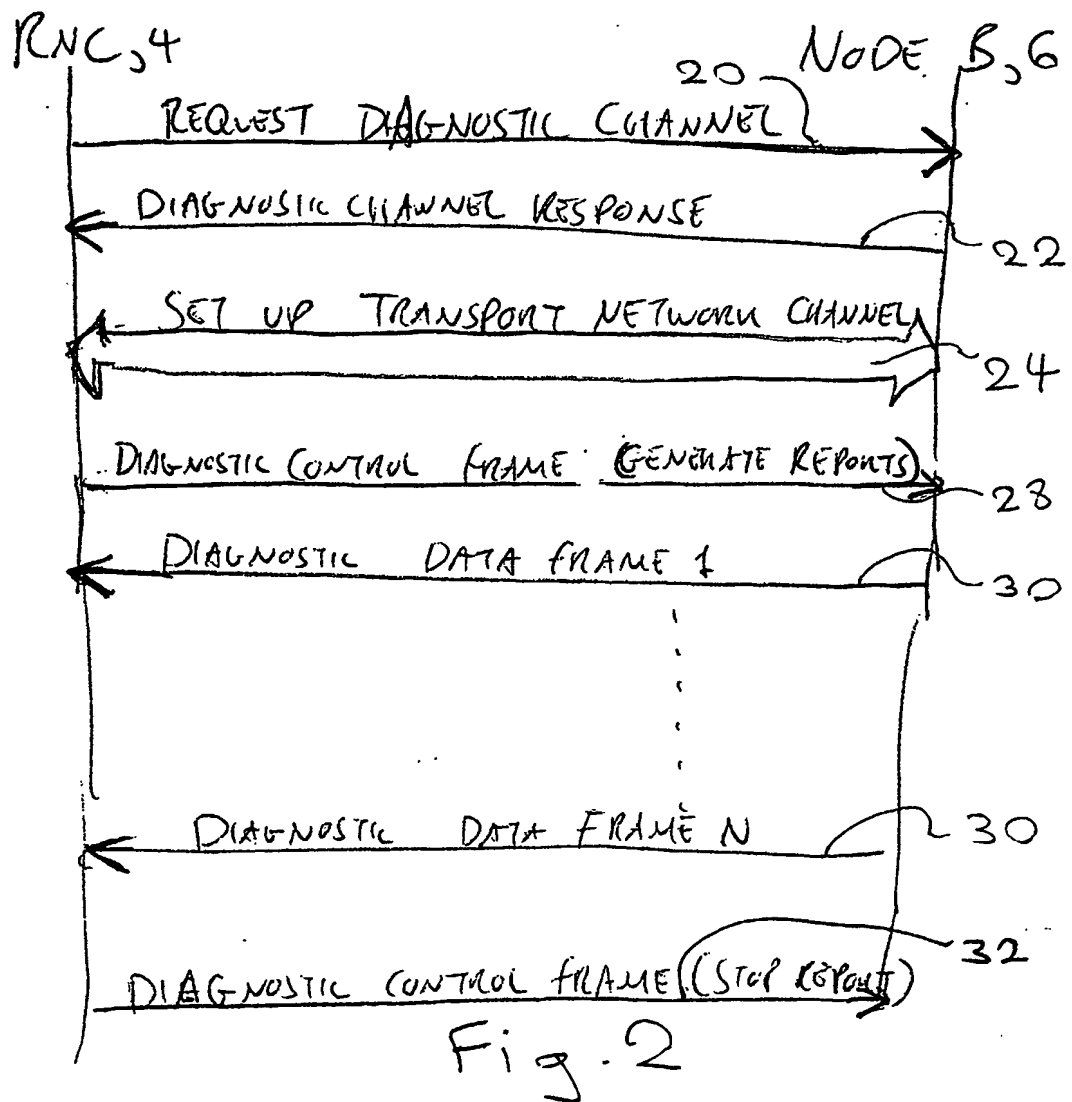 RNC,4 NODE B,6
20
REQUEST DIAGNOSTIC CHANNEL
DIAGNOSTIC CHANNEL RESPONSE
22
SET UP TRANSPORT NETWORK CHANNEL
24
DIAGNOSTIC CONTROL FRAME (GENERATE REPORTS)
28
DIAGNOSTIC DATA FRAME 1
30
DIAGNOSTIC DATA FRAME N
30
32
DIAGNOSTIC CONTROL FRAME (STOP REPORT)
Fig. 2